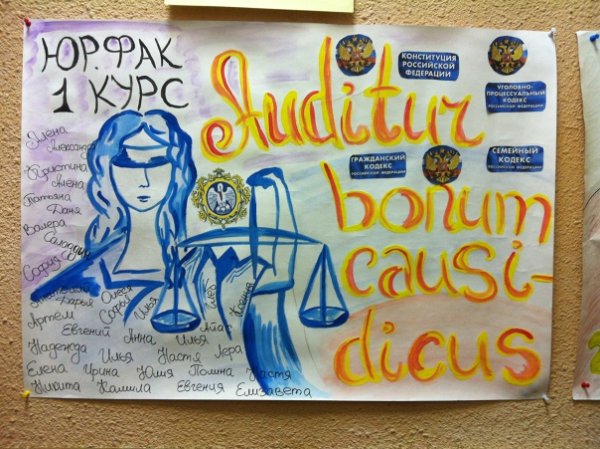 ЮР. ФАК
1 КУРС
Auditur
bonum
causi-
dicus
КОНСТИТУЦИЯ
РОССИЙСКОЙ
ФЕДЕРАЦИИ
УГОЛОВНО-
ПРОЦЕССУАЛЬНЫЙ
КОДЕКС
РОССИЙСКОЙ ФЕДЕРАЦИИ
ГРАЖДАНСКИЙ
КОДЕКС
РОССИЙСКОЙ ФЕДЕРАЦИИ
СЕМЕЙНЫЙ
КОДЕКС
РОССИЙСКОЙ ФЕДЕРАЦИИ
Алёна
Александр
Кристина
Алена
Татьяна
Даня
Валера
София
Дарья
Олеся
Артём
Софья
Илья
Олег
Ксения
Евгений Анна Илья Апас
Надежда Илья Настя Лера
Елена Ирина Юлия Полина Настя
Никита Камила Евгения Елизавета